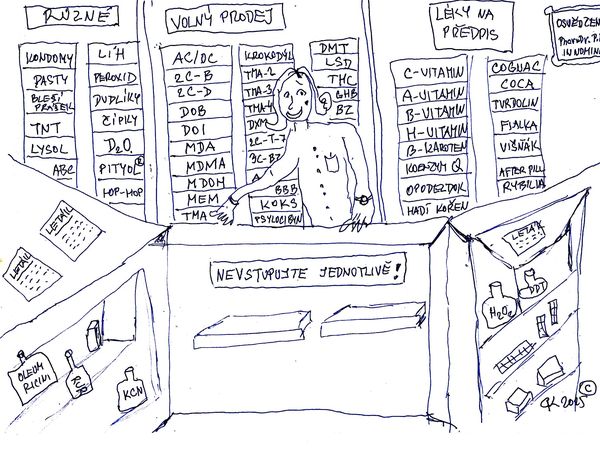 RŮZNÉ
KONDOMY
PASTY
BLEŠÍ
PRÁŠEK
TNT
LYSOL
ABC
LÍH
PEROXID
DUDLÍKY
ČÍPKY
D₂O
PITYOL®
HOP-HOP
VOLNÝ PRODEJ
AC/DC
2C-B
2C-D
DOB
DOI
MDA
MDMA
MDOH
MEM
TMA
KROKODÝL
TMA-2
TMA-3
TMA-4
DXM
2C-T-7
BBB
KOKS
PSYLOCIBYN
DMT
LSD
THC
GHB
BZ
LÉKY NA
PŘEDPIS
C-VITAMIN
A-VITAMIN
B-VITAMIN
H-VITAMIN
B-KAROTEN
KOENZYM Q
OPODELDOK
HADÍ KOŘEN
COGNAC
COCA
TVRDOLIN
FIALKA
VIŠŇÁK
AFTER PILL
RYBILKA
OSVĚDČEN
IN NOMIN
LETÁK
LETÁK
LETÁK
NEVSTUPUJTE JEDNOTLIVĚ!
OLEUM
RICINI
KCN
H₂O₂
DDT
©
2015